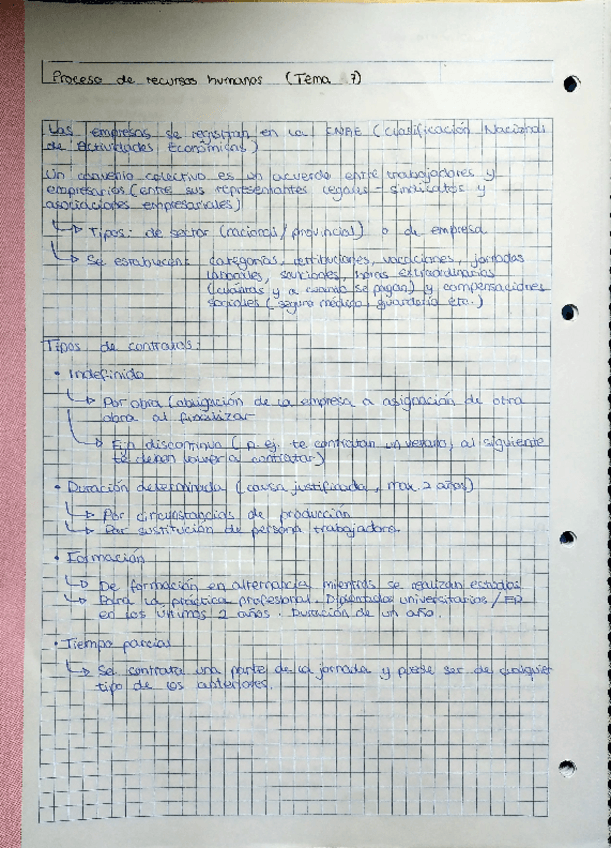 Proceso de recursos humanos (Tema 7)
Las empresas se registran en la CNAE (Clasificación Nacional
de Actividades Económicas)
Un convenio colectivo es un acuerdo entre trabajadores y
empresarios (entre sus representantes legales - sindicatos y
asociaciones empresariales)
↳ Tipos: de sector (nacional / provincial) o de empresa
↳ Se establecen: categorías, retribuciones, vacaciones, jornadas
laborales, sanciones, horas extraordinarias
(cuántas y a cuanto se pagan) y compensaciones
sociales (seguro médico, guardería etc.)
Tipos de contratos:
• Indefinido
↳ Por obra (obligación de la empresa a asignación de otra
obra al finalizar
↳ Fijo discontinuo (p. ej. te contratan un verano, al siguiente
te deben volver a contratar)
• Duración determinada (causa justificada, max. 2 años)
↳ Por circunstancias de producción
↳ Por sustitución de persona trabajadora.
• Formación
↳ De formación en alternancia mientras se realizan estudios
↳ Para la práctica profesional. Diplomados universitarios / FP
en los últimos 2 años. Duración de un año.
• Tiempo parcial
↳ Se contrata una parte de la jornada y puede ser de cualquier
tipo de los anteriores.